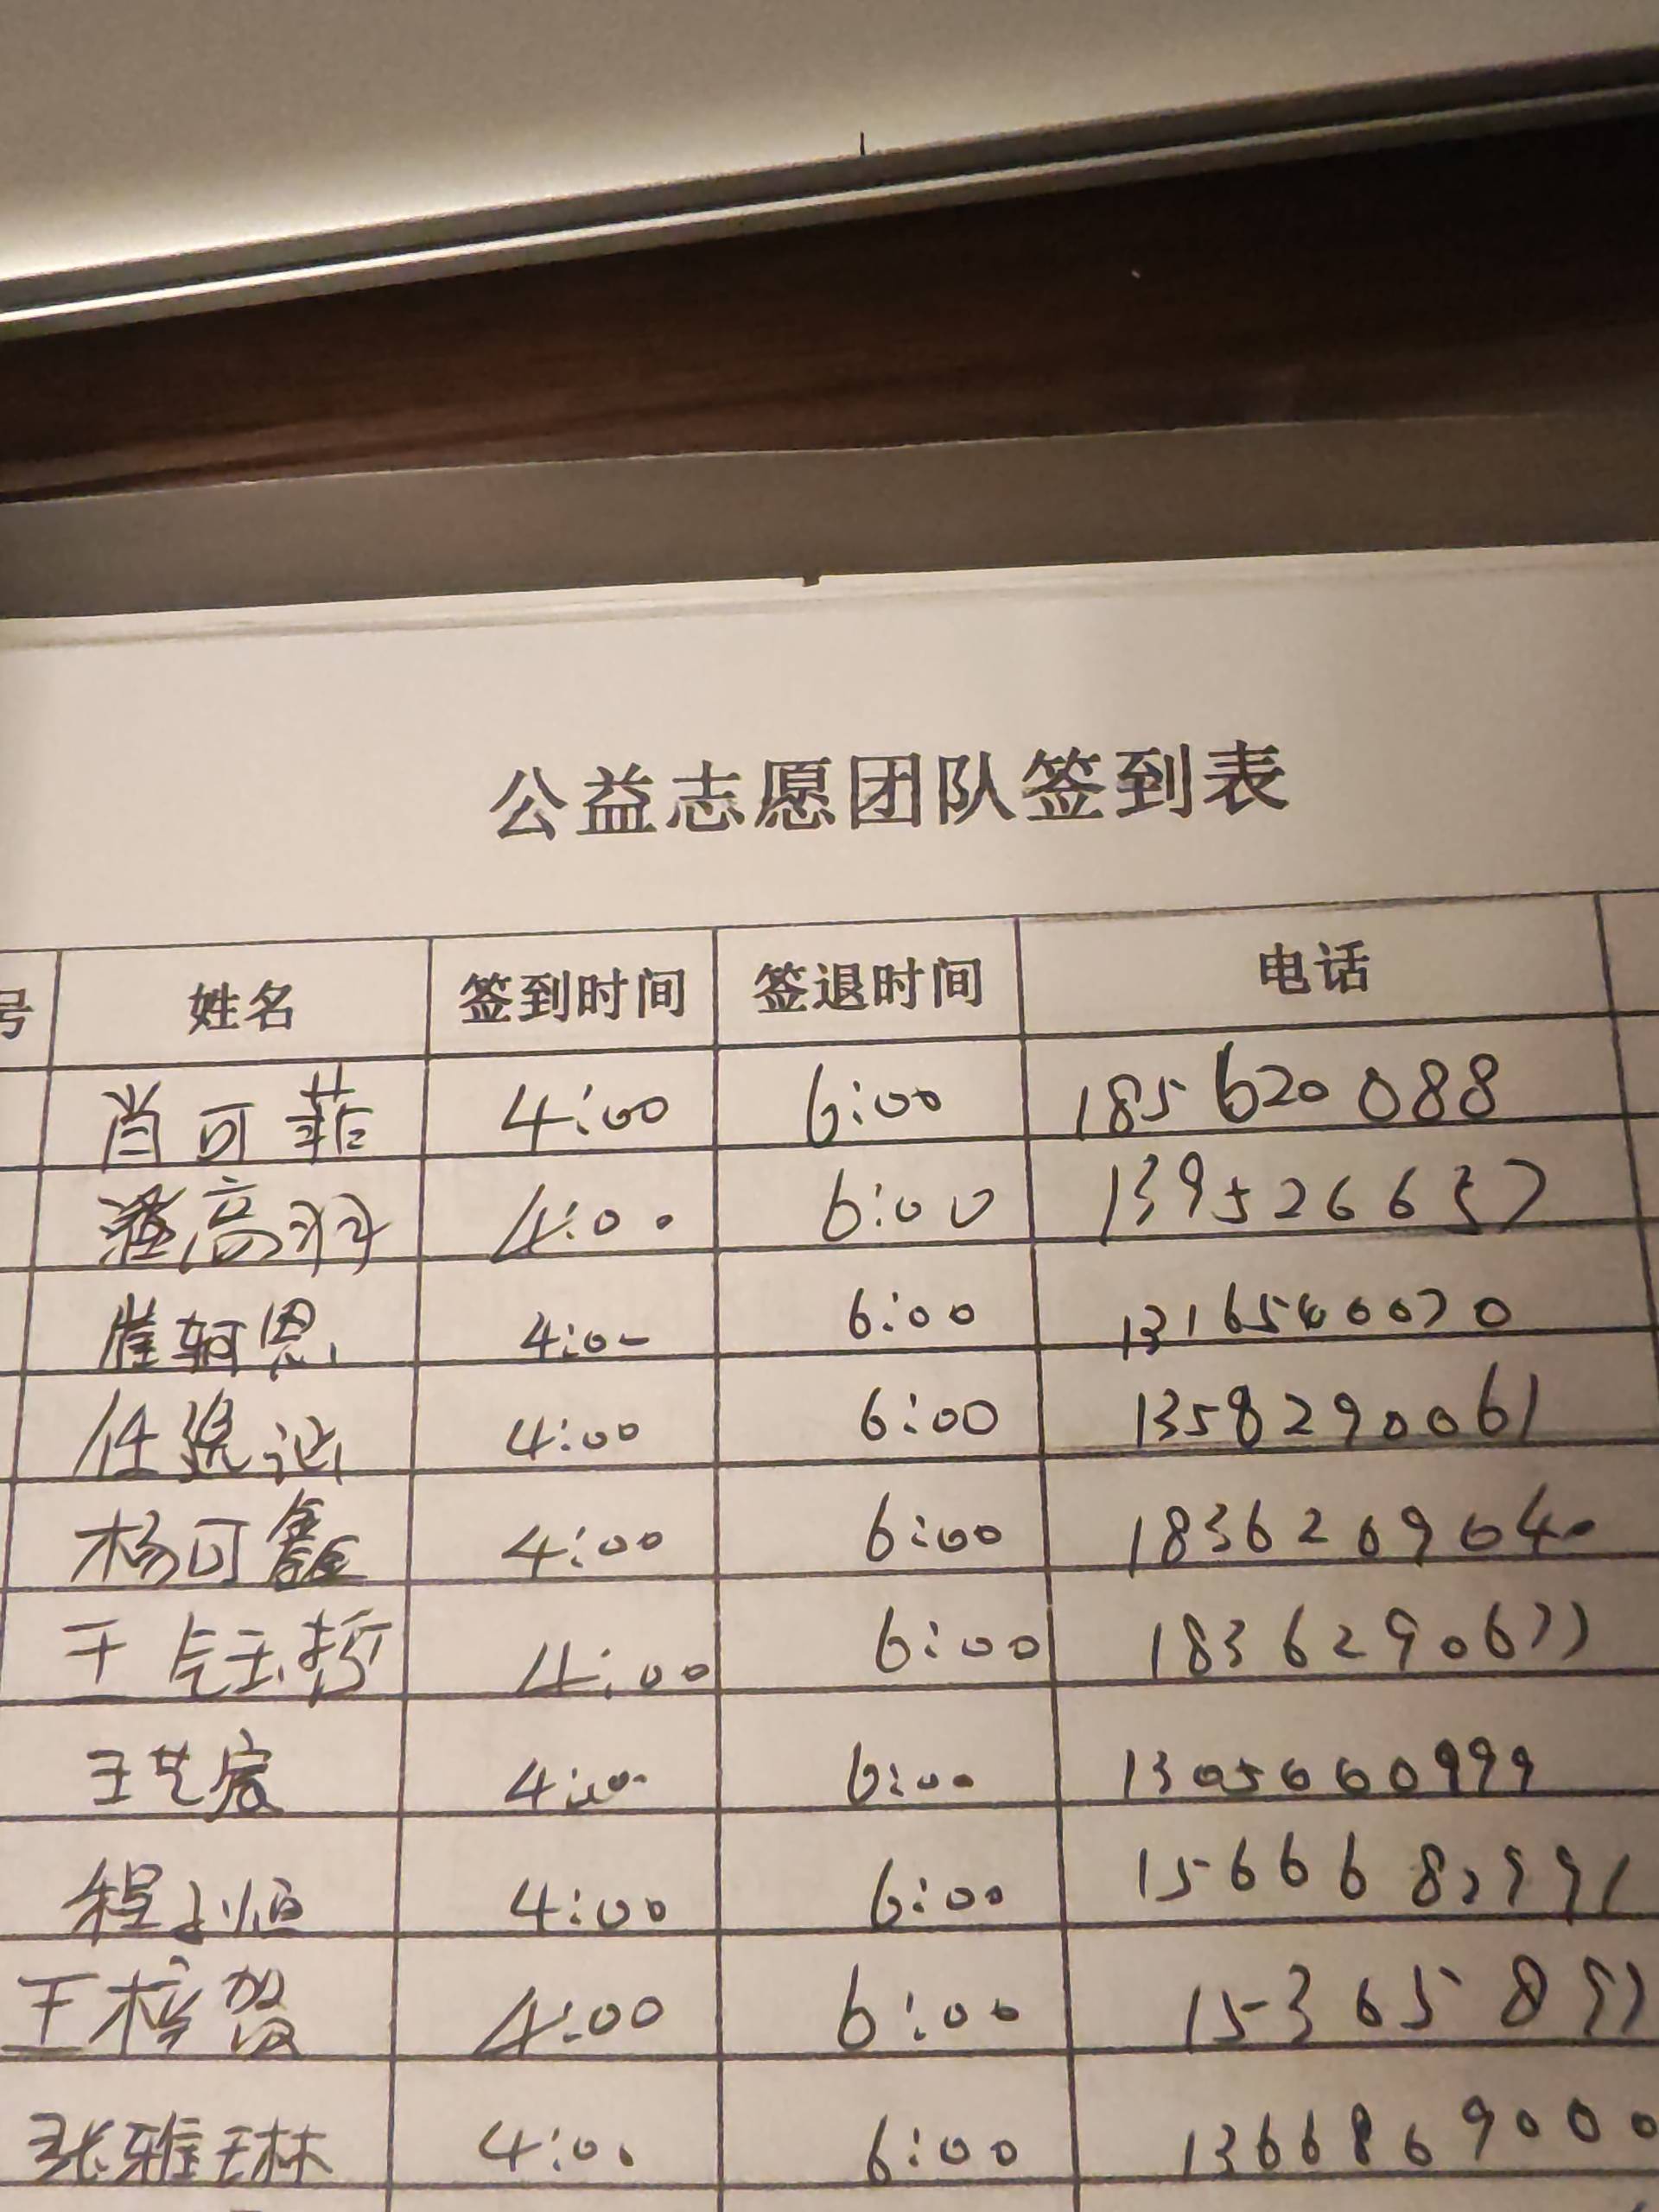 公益志愿团队签到表
号 姓名 签到时间 签退时间 电话
肖可菲 4:00 6:00 185620088
高羽 4:00 6:00 139526637
崔轲恩 4:00 6:00 1316560070
任 4:00 6:00 1358290061
杨可鑫 4:00 6:00 1836209040
王钰哲 4:00 6:00 1836290677
王艺宸 4:00 6:00 1305660999
程 恒 4:00 6:00 1566682991
王梓贺 4:00 6:00 15365897
张雅琳 4:00 6:00 1366869000